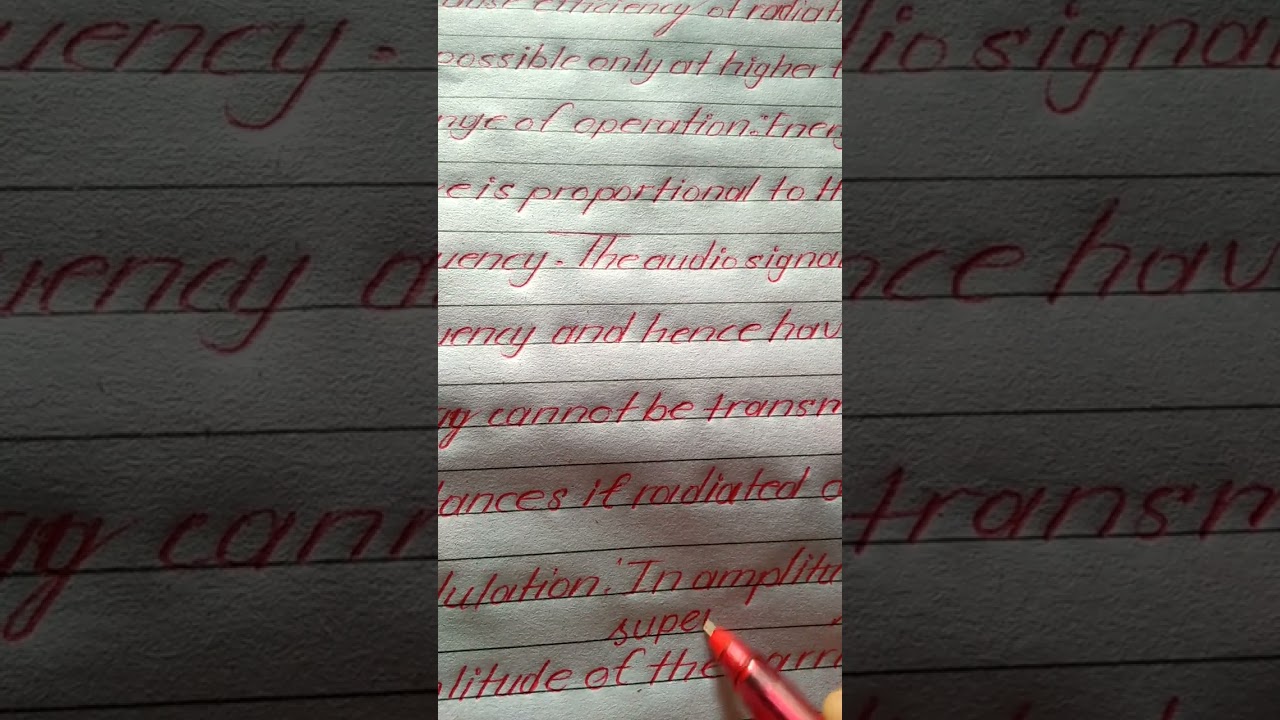 efficiency of radiati
possible only at higher
nge of operation. "Ener
e is proportional to th
uency. The audio signal
uency and hence hav
gy cannot be transm
ances if radiated
dulation. "In amplitu
super
plitude of the carri